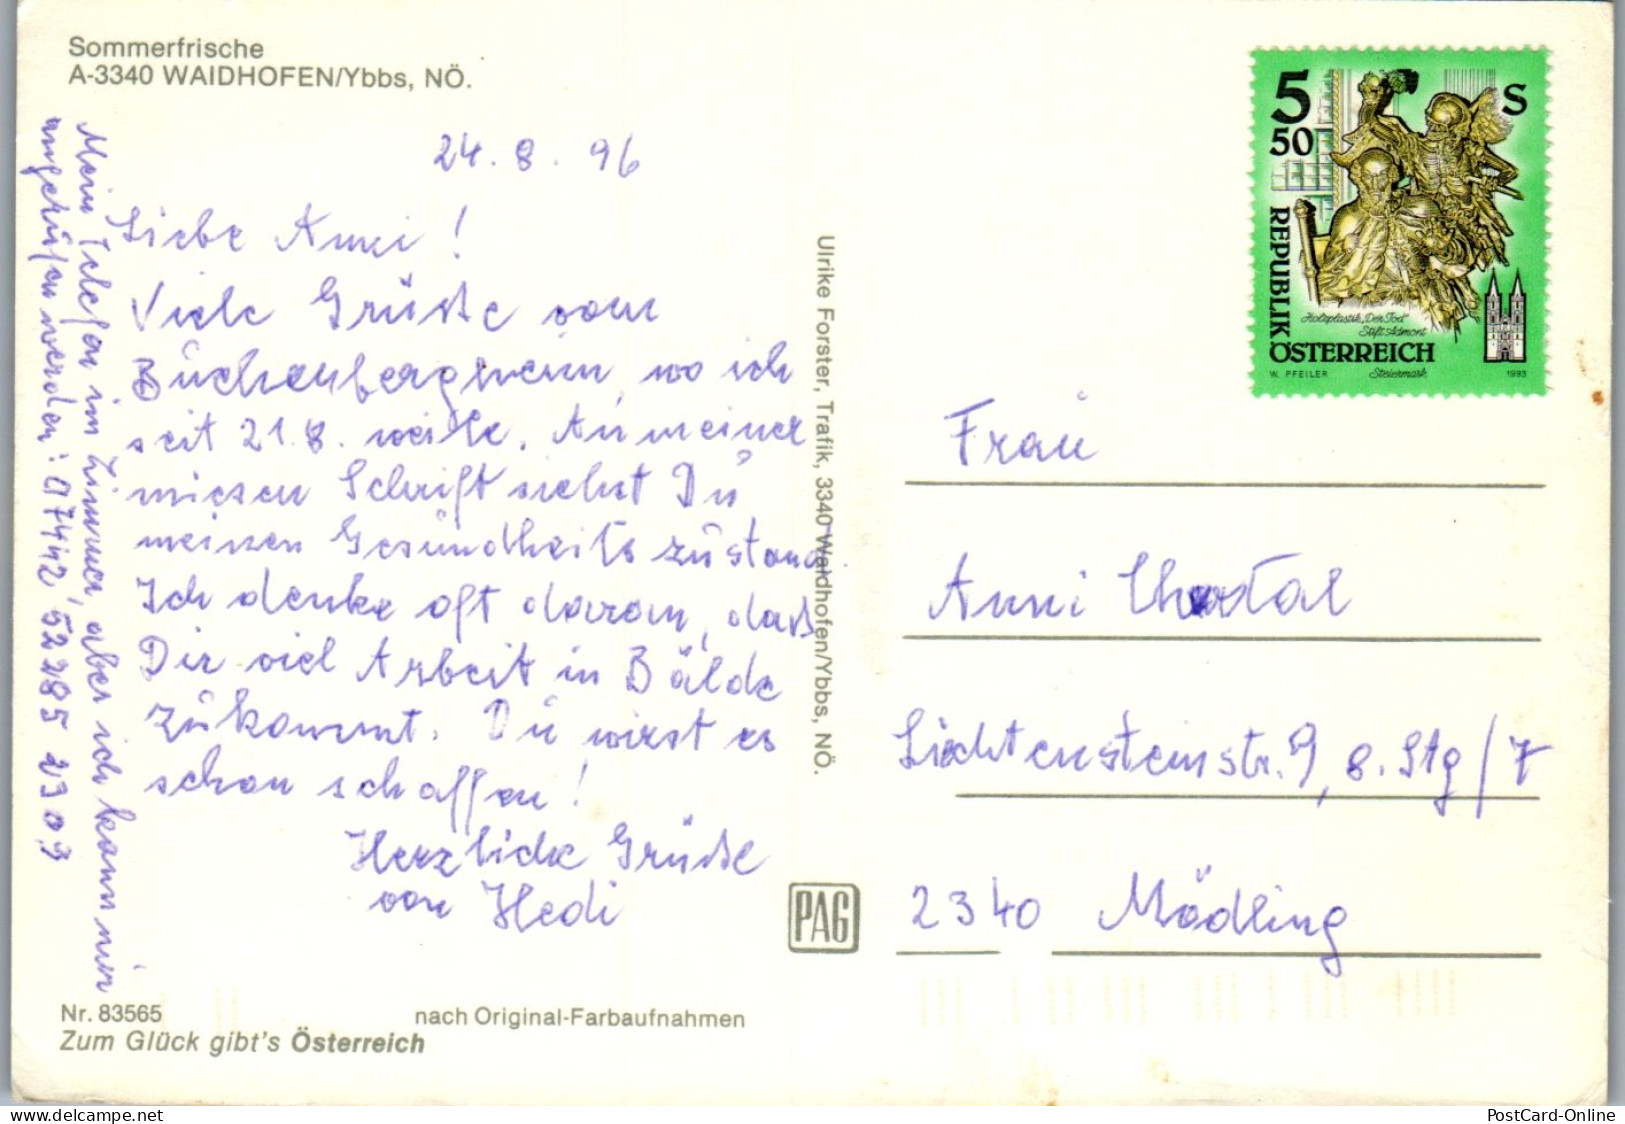 Sommerfrische
A-3340 WAIDHOFEN/Ybbs, NÖ.
24. 8. 96
Liebe Anni!
Viele Grüße vom
Buchenbergheim, wo ich
seit 21.8. weile. An meiner
miesen Schrift siehst Du
meinen Gesundheitszustand.
Ich denke oft daran, daß
Dir viel Arbeit in Bälde
zukommt. Du wirst es
schon schaffen!
Herzliche Grüße
von Hedi
Mein Telefon im Zimmer, aber ich kann nur
angerufen werden: 07442 52285 2309
Nr. 83565
nach Original-Farbaufnahmen
Zum Glück gibt's Österreich
Ulrike Forster, Trafik, 3340 Waidhofen/Ybbs, NÖ.
PAG
5 S
50
REPUBLIK
ÖSTERREICH
Holzplastik „Der Tod"
Stift Admont
Steiermark
W. PFEILER
1993
Frau
Anni
Liechtensteinstr. 9, 8. Stg/7
2340 Mödling
PostCard-Online
www.delcampe.net